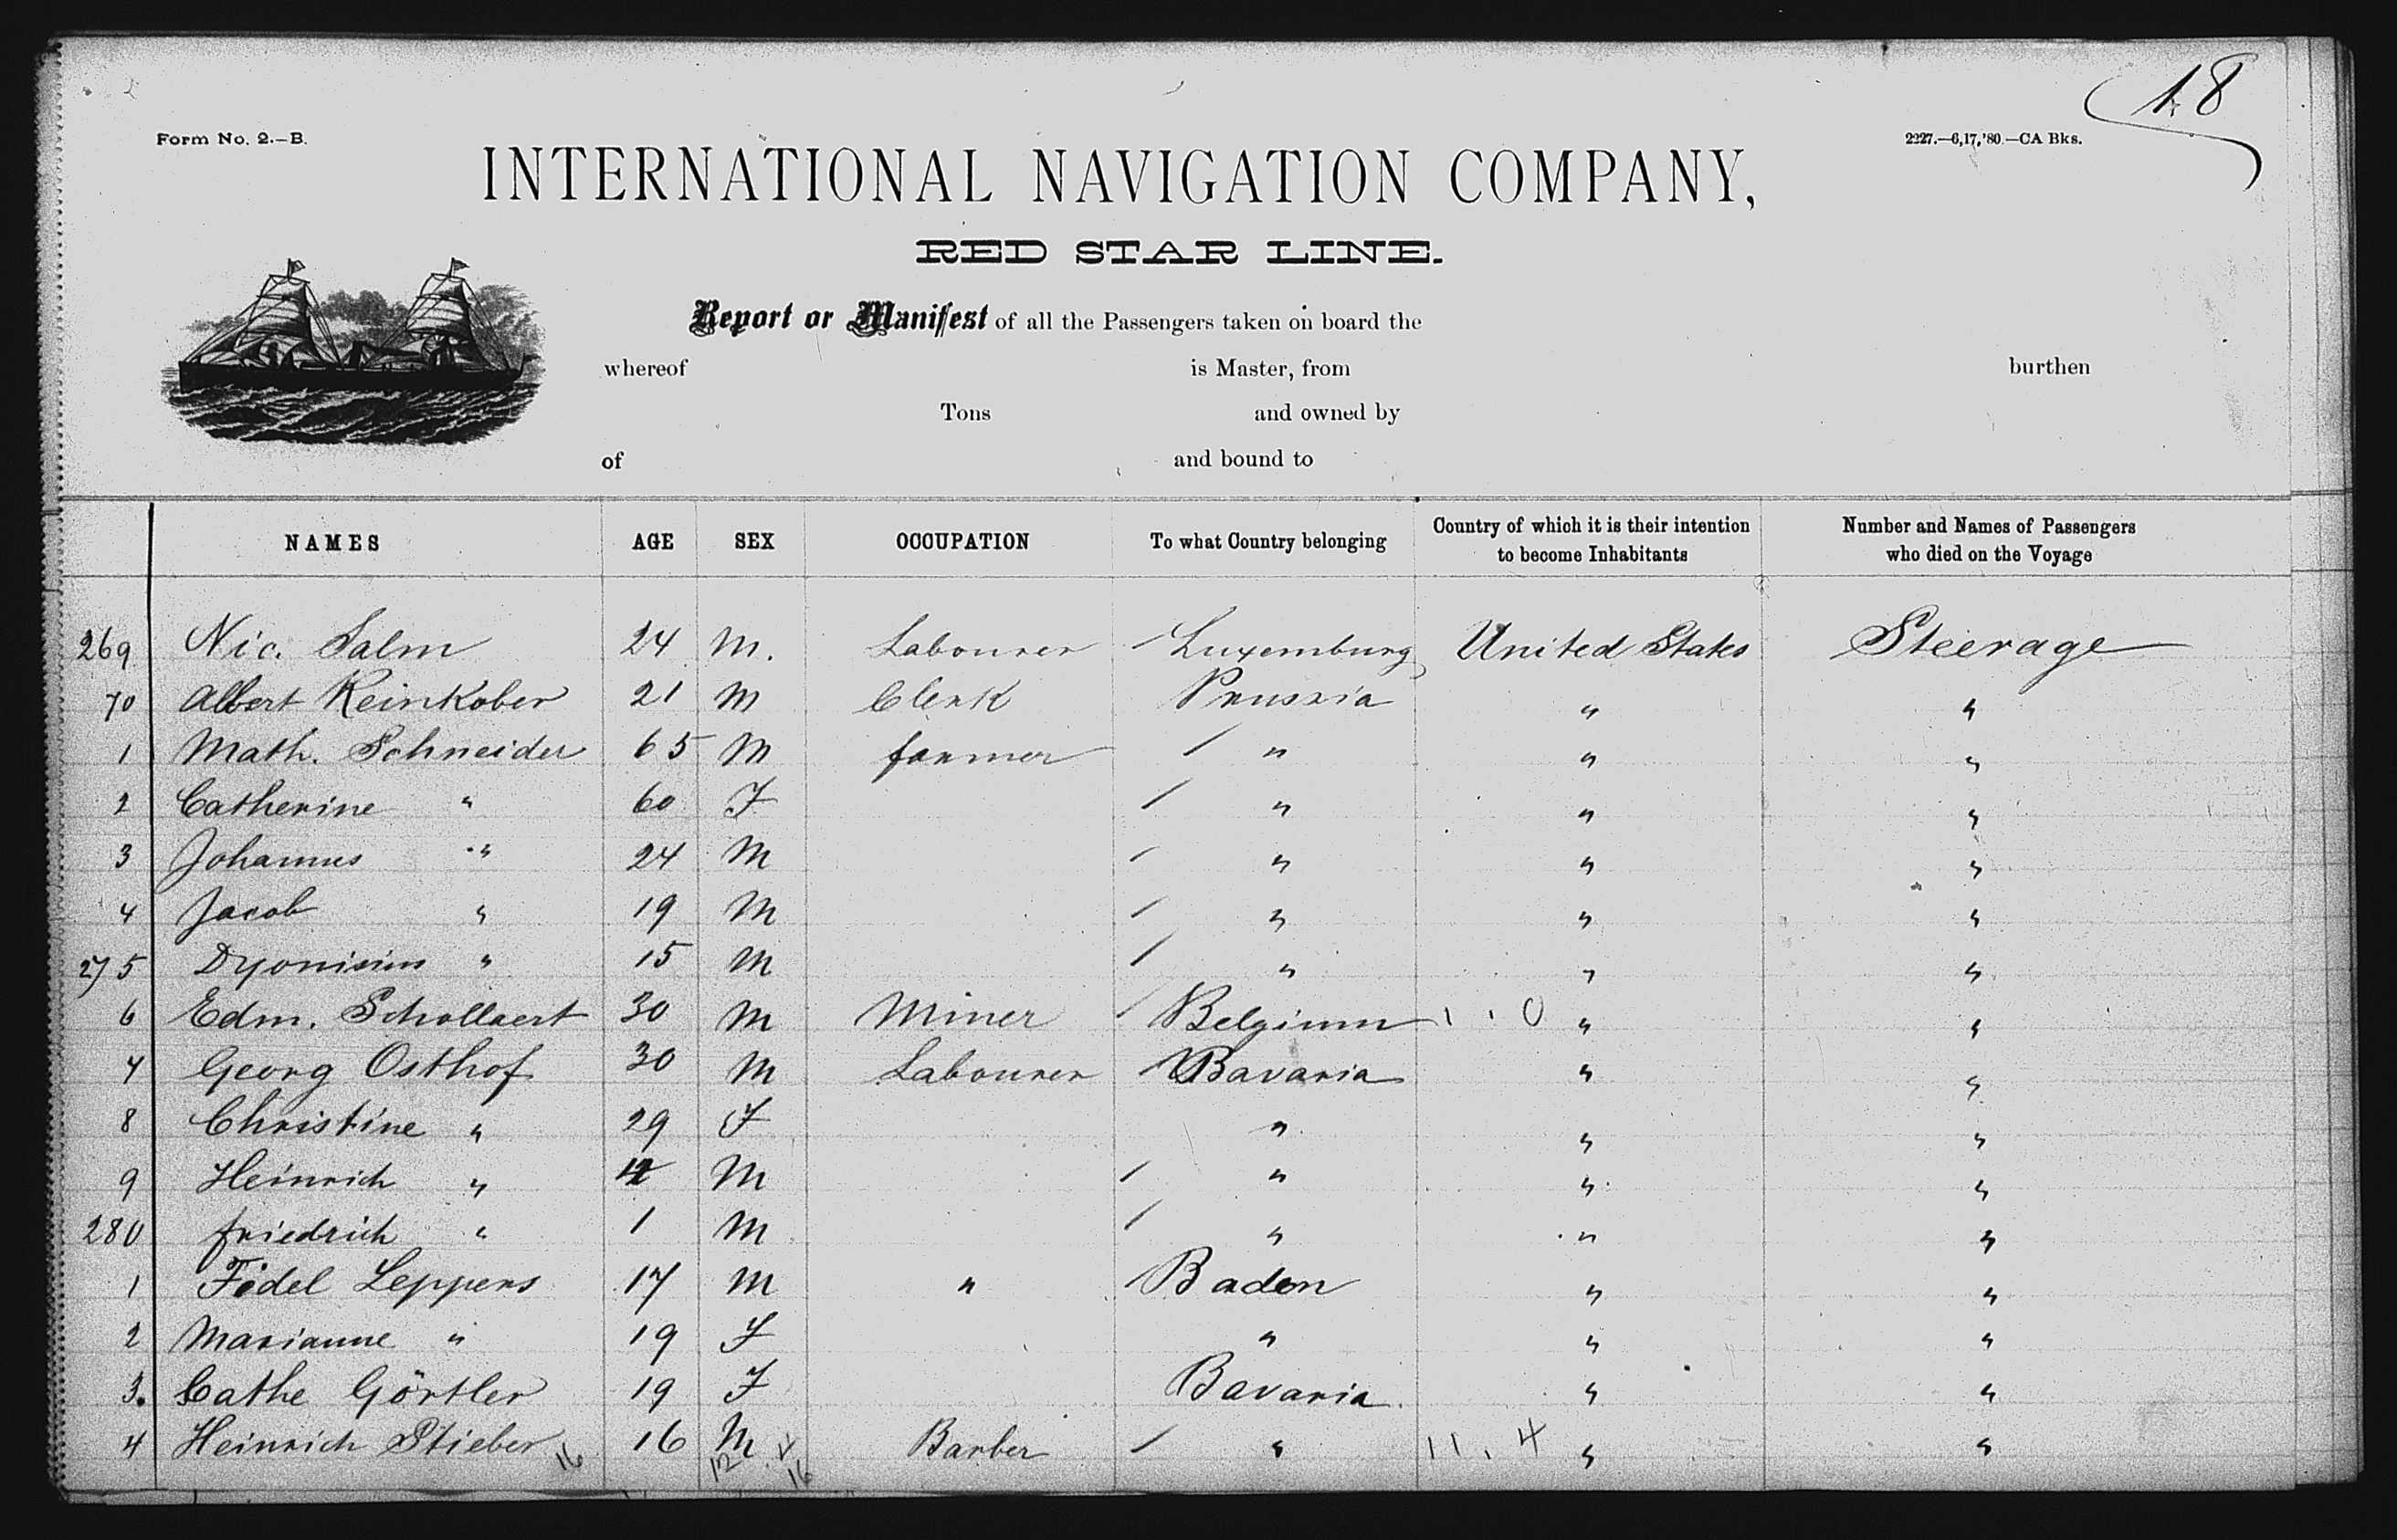 18
Form No. 2.—B.
2227.—6,17,'80.—CA Bks.
INTERNATIONAL NAVIGATION COMPANY,
RED STAR LINE.
Report or Manifest of all the Passengers taken on board the
whereof is Master, from burthen
Tons and owned by
of and bound to
NAMES AGE SEX OCCUPATION To what Country belonging Country of which it is their intention to become Inhabitants Number and Names of Passengers who died on the Voyage
269 Nic. Salm 24 M. Labourer Luxemburg United States Steerage
70 Albert Reinkober 21 M Clerk Prussia " "
1 Math. Schneider 65 M farmer " " "
2 Catherine " 60 F " " "
3 Johannes " 24 M " " "
4 Jacob " 19 M " " "
275 Dyonisius " 15 M " " "
6 Edm. Schollaert 30 M Miner Belgium 1 . 0 " "
7 Georg Osthof 30 M Labourer Bavaria " "
8 Christine " 29 F " " "
9 Heinrich " M " " "
280 friedrich " 1 M " " "
1 Fidel Leppers 17 M " Baden " "
2 Marianne " 19 F " " "
3. Cathe Görtler 19 F Bavaria " "
4 Heinrich Stieber 16 M Barber " 11 . 4 " "
16 12 . 4 16